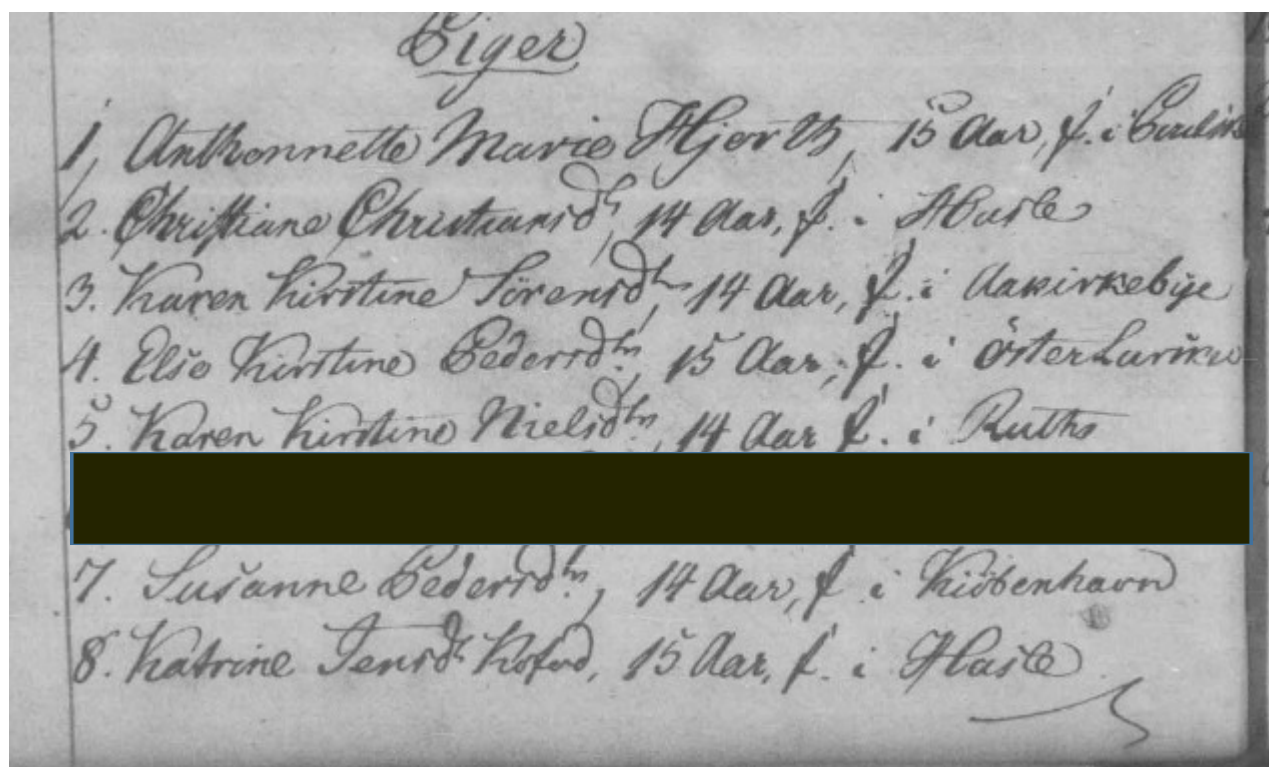 Piger
1, Anthonnette Marie Hjorth, 15 Aar, f. i
2. Christiane Christiansdt, 14 Aar, f. i Hasle
3. Karen Kirstine Sörensdtr, 14 Aar, f. i Aakirkebÿe
4. Else Kirstine Pedersdtr, 15 Aar, f. i ÖsterLarsker
5. Karen Kirstine Nielsdtr, 14 Aar f. i Ruths
7. Susanne Pedersdtr, 14 Aar, f i Kiöbenhavn
8. Katrine Jensdt Kofod, 15 Aar, f. i Hasle